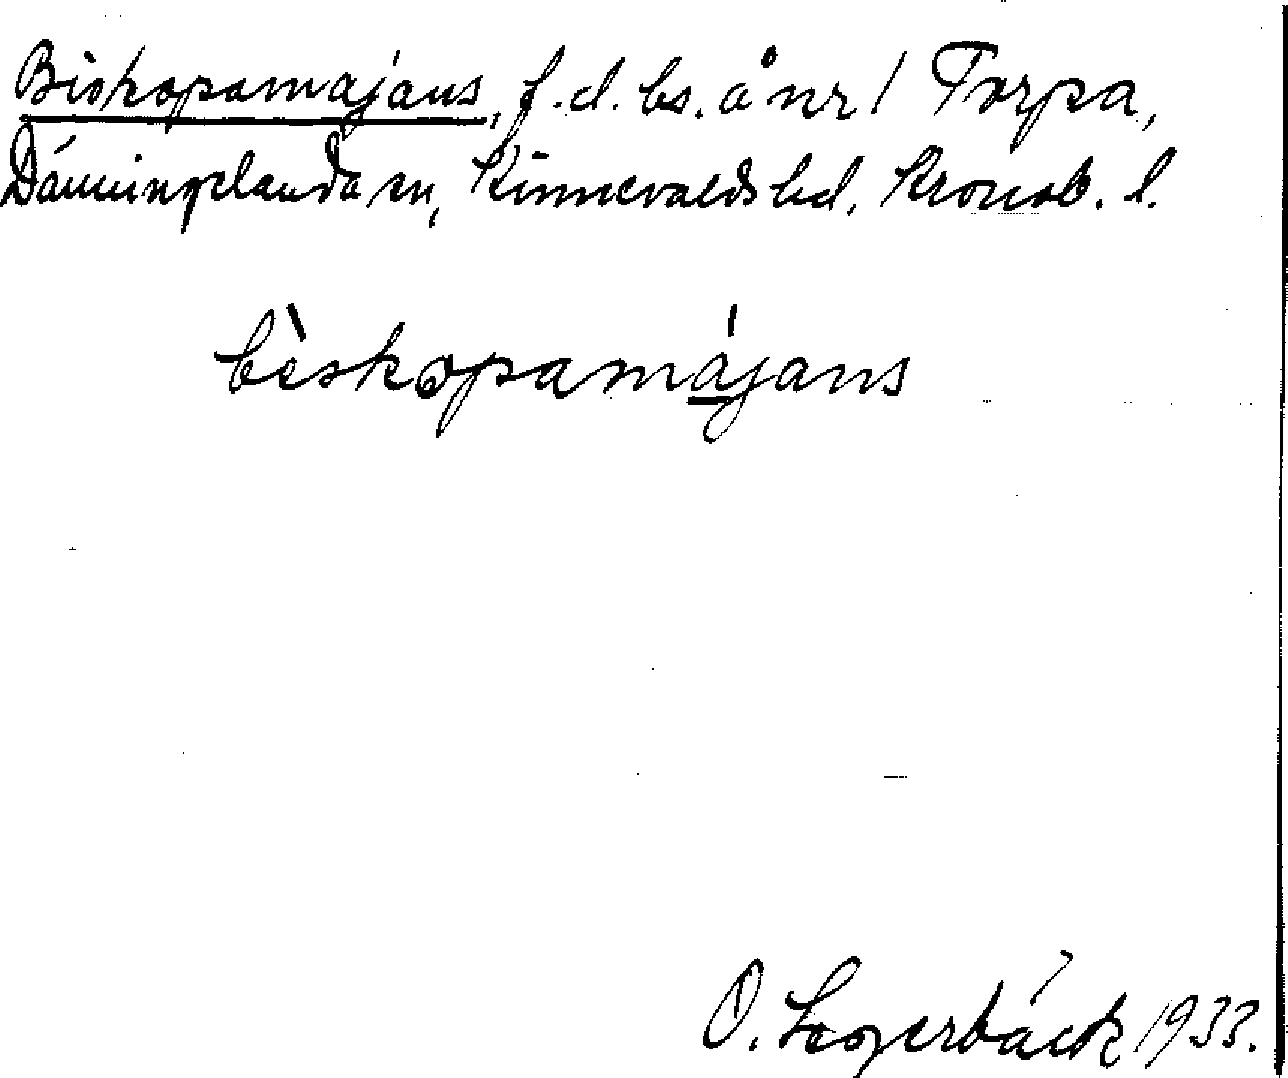 Biskopamajans, f.d. bs. å nr 1 Torpa,
Dänningelanda sn, Kinnevalds hd. Kronob. l.
bèskopamájans
O. Lagerbäck 1933.